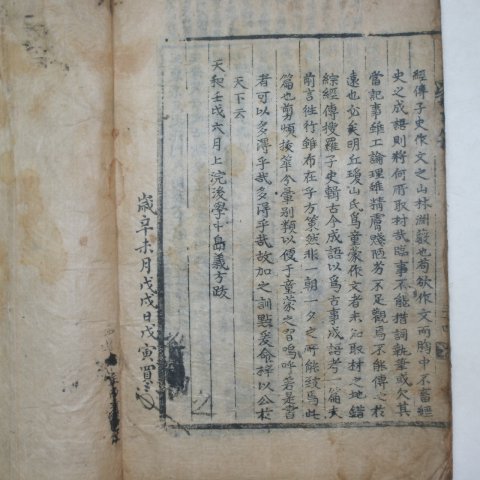 經傳子史作文之山林淵藪也苟欲作文而胸中不蓄經
史之成語則將何所取材哉臨事不能措詞執筆或欠其
當記事雖工論理雖精膚淺陋劣不足觀焉不能傳之教
遠也必矣明丘瓊山氏爲童蒙作文者未知取材之地錯
綜經傳搜羅子史輯古今成語以爲古事成語考一篇夫
前言往行雖布在乎方策然非一朝一夕之所能緩焉此
篇也剪煩撮華令彙別類以便于童蒙之習嗚呼若是書
者可以多得乎哉多得乎哉故加之訓點爰命梓以公於
天下云
天和壬戌六月上浣後學中島義方跋
歲辛未月戊戌日戊寅買